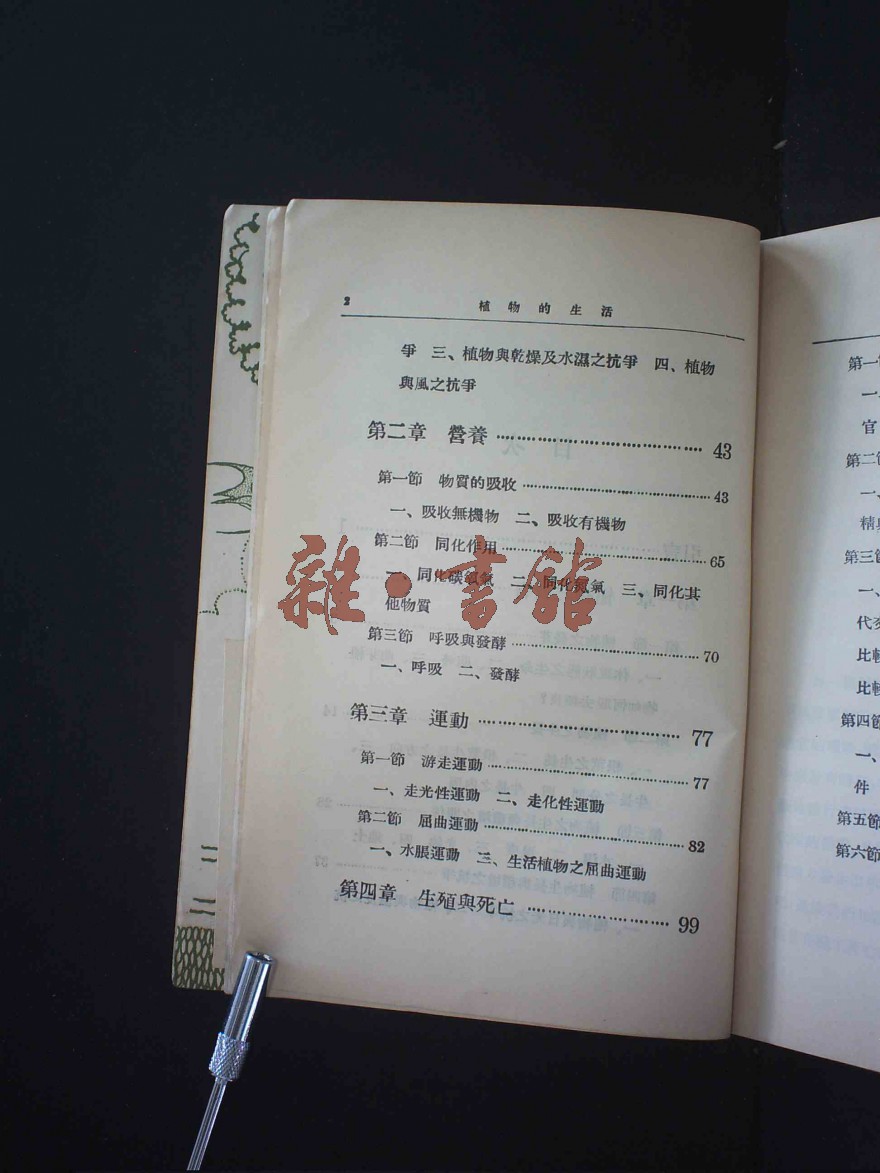 2 植物的生活
爭 三、植物與乾燥及水濕之抗爭 四、植物
與風之抗爭
第二章 營養 43
第一節 物質的吸收 43
一、吸收無機物 二、吸收有機物
第二節 同化作用 65
一、同化碳氣 二、同化氮氣 三、同化其
他物質
第三節 呼吸與發酵 70
一、呼吸 二、發酵
第三章 運動 77
第一節 游走運動 77
一、走光性運動 二、走化性運動
第二節 屈曲運動 82
一、水脹運動 三、生活植物之屈曲運動
第四章 生殖與死亡 99
雜·書館
第一
一、
官
第二
一、
精
第三節
一、
代
比較
比較
第四節
一、
件
第五節
第六節